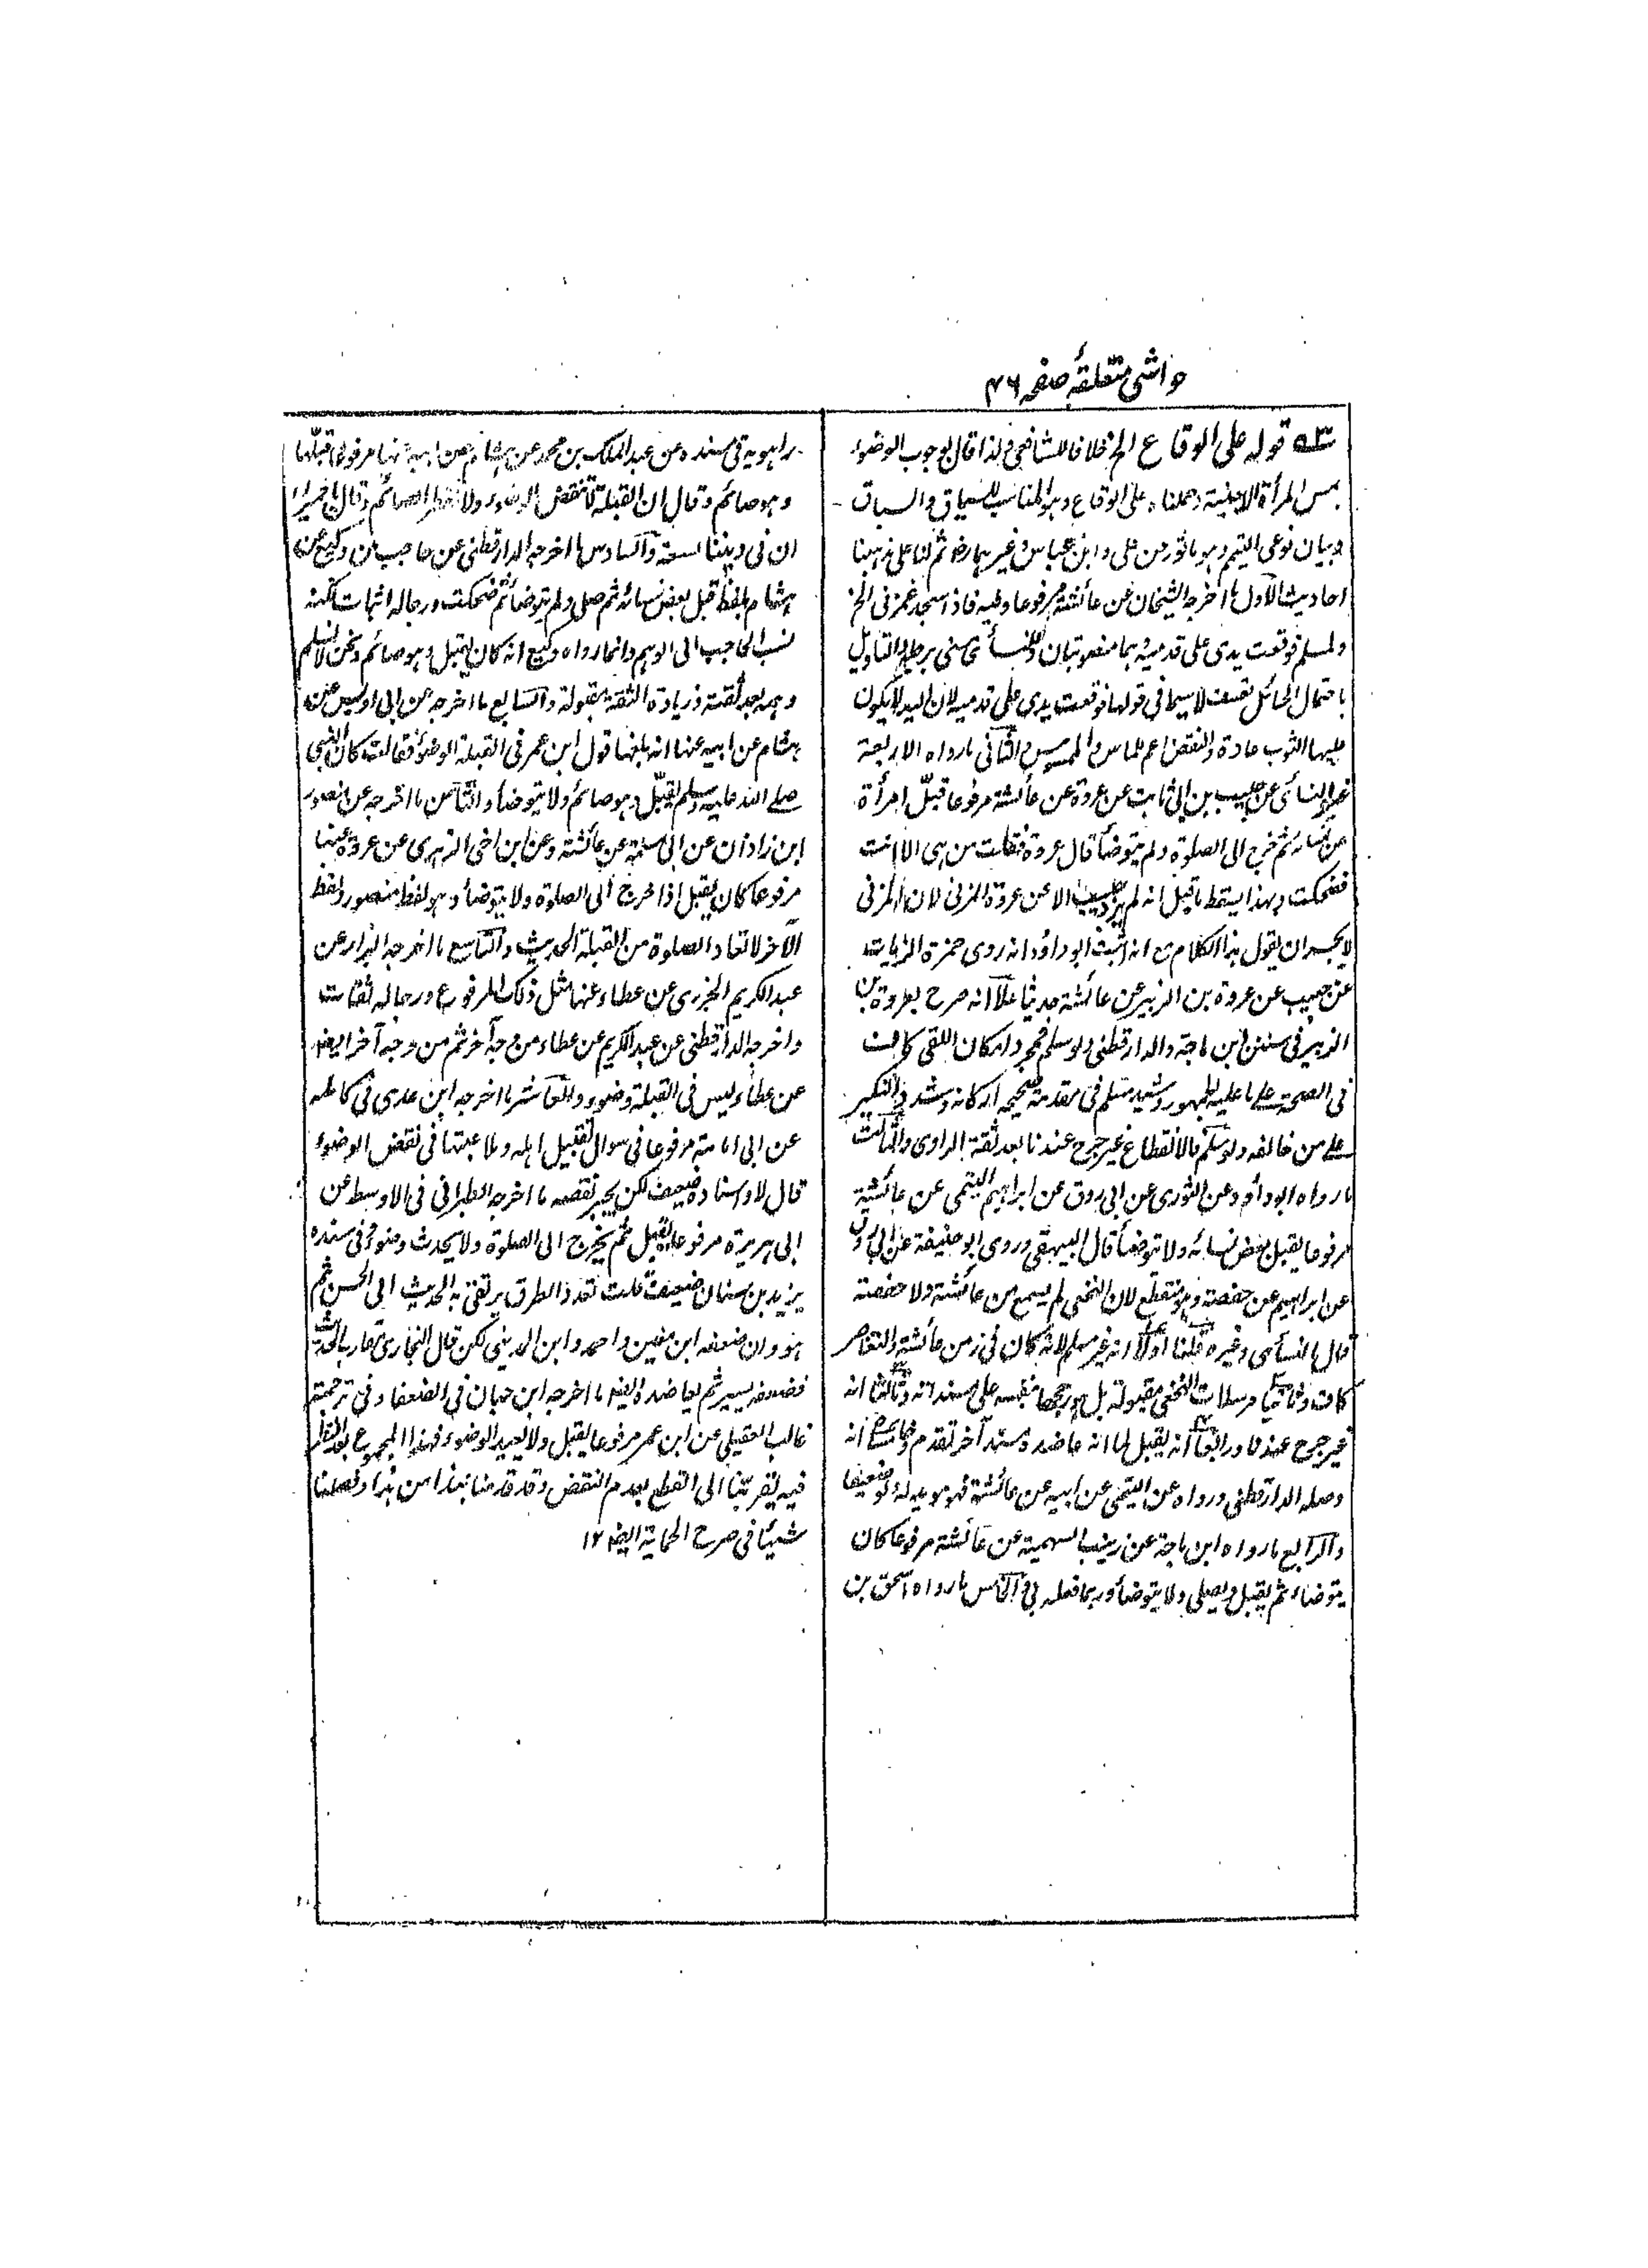 حواشی متعلقۂ صفحہ ۴۶
قوله على الوقاع الخ خلافا للشافعي ولذا قال بوجوب الوضوء
بمس المرأة الاجنبية وحملناه على الوقاع وهو المناسب للسياق والسباق
وبيان نوعي التيمم وهو ماثور عن على وابن عباس وغيرهما رض ثم لنا على مذهبنا
احاديث الاول ما اخرجه الشيخان عن عائشة مرفوعا وفيه فاذا سجد غمزني الخ
ولمسلم فوقعت يدى على قدميه وهما منصوبتان وللنسائى مسنى برجله والتاويل
باحتمال الحائل تعسف لاسيما في قولها فوقعت يدى على قدميه لان اليد لا يكون
عليها الثوب عادة والنقض اعم للماس والملموس والثاني ما رواه الاربعة
غير النسائى عن حبيب بن ابي ثابت عن عروة عن عائشة مرفوعا قبّل امرأة
من نسائه ثم خرج الى الصلوة ولم يتوضأ قال عروة فقلت من هى الا انت
فضحكت وبهذا يسقط ما قيل انه لم يرو حبيب الا عن عروة المزنى لان المزنى
لا يجسر ان يقول هذا الكلام مع انه اثبت ابو داؤد انه روى حمزة الزيات
عن حبيب عن عروة بن الزبير عن عائشة حديثا علا انه صرح بعروة بن
الزبير في سنن ابن ماجة والدارقطني ولو سلم فمجرد امكان اللقى كافت
في الصحة على ما عليه الجمهور وشيد مسلم في مقدمة صحيحه اركانه وشدد النكير
على من خالفه ولو سلم فالانقطاع غير جرح عندنا بعد ثقة الراوى والثالث
ما رواه ابو داؤد عن الثورى عن ابى روق عن ابراهيم التيمى عن عائشة
مرفوعا يقبل بعض نسائه ولا توضأ قال البيهقى وروى ابو حنيفة عن ابى روق
عن ابراهيم عن حفصة وهو منقطع لان النخعى لم يسمع من عائشة ولا حفصة
قال النسائى وغيره قلنا اولا انه غير مسلم لانه كان في زمن عائشة والتعاصر
كاف وثانيا مرسلات النخعى مقبولة بل هو رجحها نفسه على مسنداته وثالثا انه
غير جرح عندنا ورابعا انه يقبل لما انه عاضد ومسند آخر تقدم وخامسا انه
وصله الدارقطنى ورواه عن التيمى عن ابيه عن عائشة فهو مؤيد له ولو ضعيفا
والرابع ما رواه ابن ماجة عن زينب السهمية عن عائشة مرفوعا كان
يتوضاء ثم يقبل ويصلى ولا يتوضأ وربما فعله بى والخامس ما رواه اسحق بن
راهويه في مسنده عن عبد الملك بن محمد عن هشام عن ابيه عنها مرفوعا قبّلها
وهو صائم وقال ان القبلة لا تنقض الوضوء ولا تفطر الصائم وقال يا حميراء
ان في ديننا لسعة والسادس ما اخرجه الدارقطنى عن حاجب عن وكيع عن
هشام بلفظ قبل بعض نسائه ثم صلى ولم يتوضأ ثم ضحكت ورجاله اثبات لكنه
نسب الحاجب الى الوهم وانما رواه وكيع انه كان يقبل وهو صائم ونحن لا نسلم
وهمه بعد ثقته وزيادة الثقة مقبولة والسابع ما اخرجه عن ابى اويس عن
هشام عن ابيه عنها انه بلغها قول ابن عمر في القبلة الوضوء فقالت كان النبي
صلے الله عليه وسلم يقبّل وهو صائم ولا يتوضأ والثامن ما اخرجه عن منصور
ابن زاذان عن ابى سلمة عن عائشة وعن ابن اخى الزهرى عن عروة عنها
مرفوعا كان يقبل اذا خرج الى الصلوة ولا يتوضأ وهو لفظ منصور ولفظ
الآخر لا تعاد الصلوة من القبلة الحديث والتاسع ما اخرجه البزار عن
عبد الكريم الجزرى عن عطاء عنها مثل ذلك المرفوع ورجاله ثقات
واخرجه الدارقطنى عن عبد الكريم عن عطاء من وجه آخر ثم من وجه آخر ايضا
عن عطاء ليس في القبلة وضوء والعاشر ما اخرجه ابن عدى في كامله
عن ابى امامة مرفوعا في سوال تقبيل اهله وملاعبتها في نقض الوضوء
قال لا واسناده ضعيف لكن يجبر نقصه ما اخرجه الطبرانى في الاوسط عن
ابى هريرة مرفوعا يقبل ثم يخرج الى الصلوة ولا يحدث وضوء وفى سنده
يزيد بن سنان ضعيف قلت تعدد الطرق يرتقى به الحديث الى الحسن ثم
هو وان ضعفه ابن معين واحمد وابن المدينى لكن قال البخارى مقارب الحديث
فضعفه يسير ثم يعاضده ايضا ما اخرجه ابن حبان في الضعفا وفى ترجمة
غالب العقيلى عن ابن عمر مرفوعا يقبل ولا يعيد الوضوء فهذا المجموع بعد النظر
فيه يقربنا الى القطع بعدم النقض وقد قدمنا نبذا من هذا وفصلنا
شيئا في صرح الحماية ايضا ۱۲